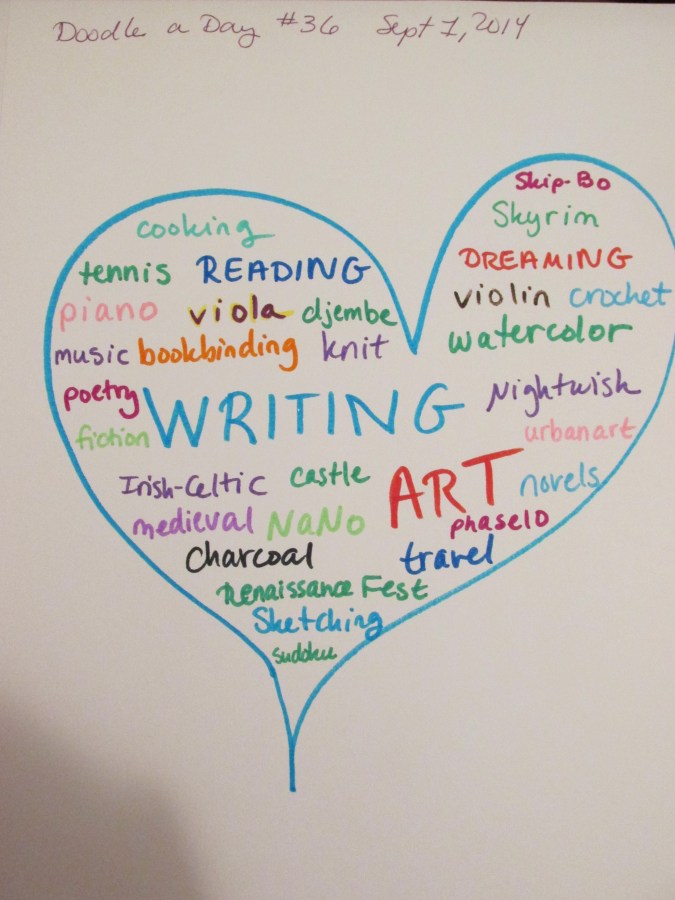 Doodle a Day #36 Sept 1, 2014
Skip-Bo
cooking Skyrim
tennis READING DREAMING
piano viola djembe violin crochet
music bookbinding knit watercolor
poetry WRITING Nightwish
fiction urban art
Irish-Celtic castle ART novels
medieval NaNo phase10
Charcoal travel
Renaissance Fest
Sketching
sudoku